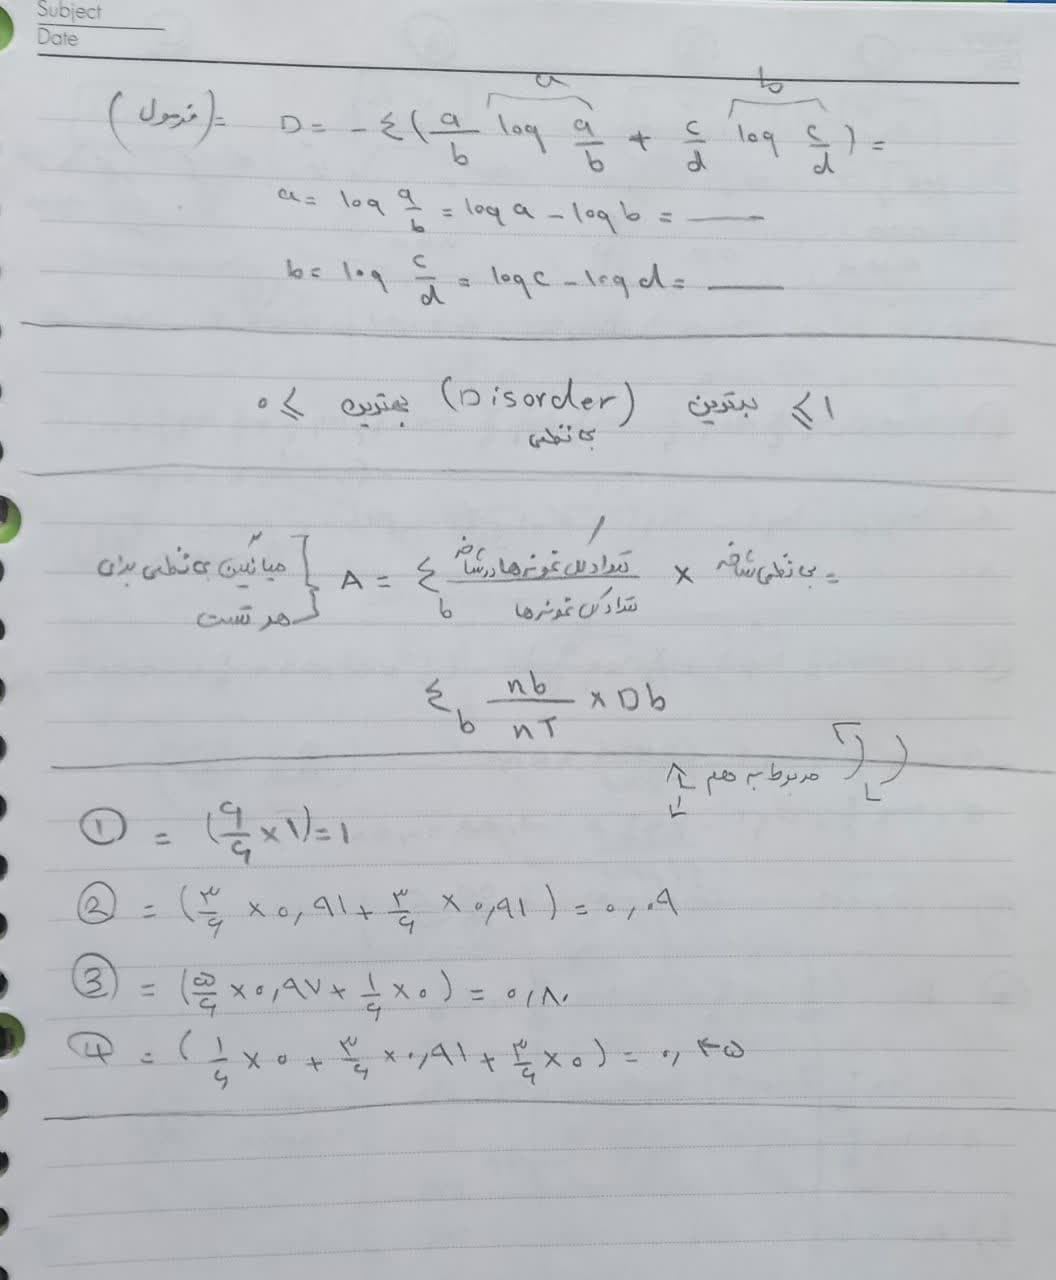 Subject
Date
a b
(فرمول) = D = - Σ ( a/b log a/b + c/d log c/d ) =
a = log a/b = log a - log b = ——
b = log c/d = log c - log d = ——
۰ ⩽ بهترین (Disorder) بدترین ⩽ ۱
بی نظمی
میانگین بی نظمی برای هر تست } A = Σb تعداد کل نمونه ها در شاخه / تعداد کل نمونه ها × بی نظمی شاخه =
Σb nb/nT × Db
مربوط به هم
① = (۶/۶ × ۱) = ۱
② = (۳/۶ × ۰,۹۱ + ۳/۶ × ۰,۹۱) = ۰,۰۹
③ = (۵/۶ × ۰,۹۷ + ۱/۶ × ۰) = ۰,۸۰
④ = (۱/۶ × ۰ + ۳/۶ × ۰,۹۱ + ۲/۶ × ۰) = ۰,۴۵